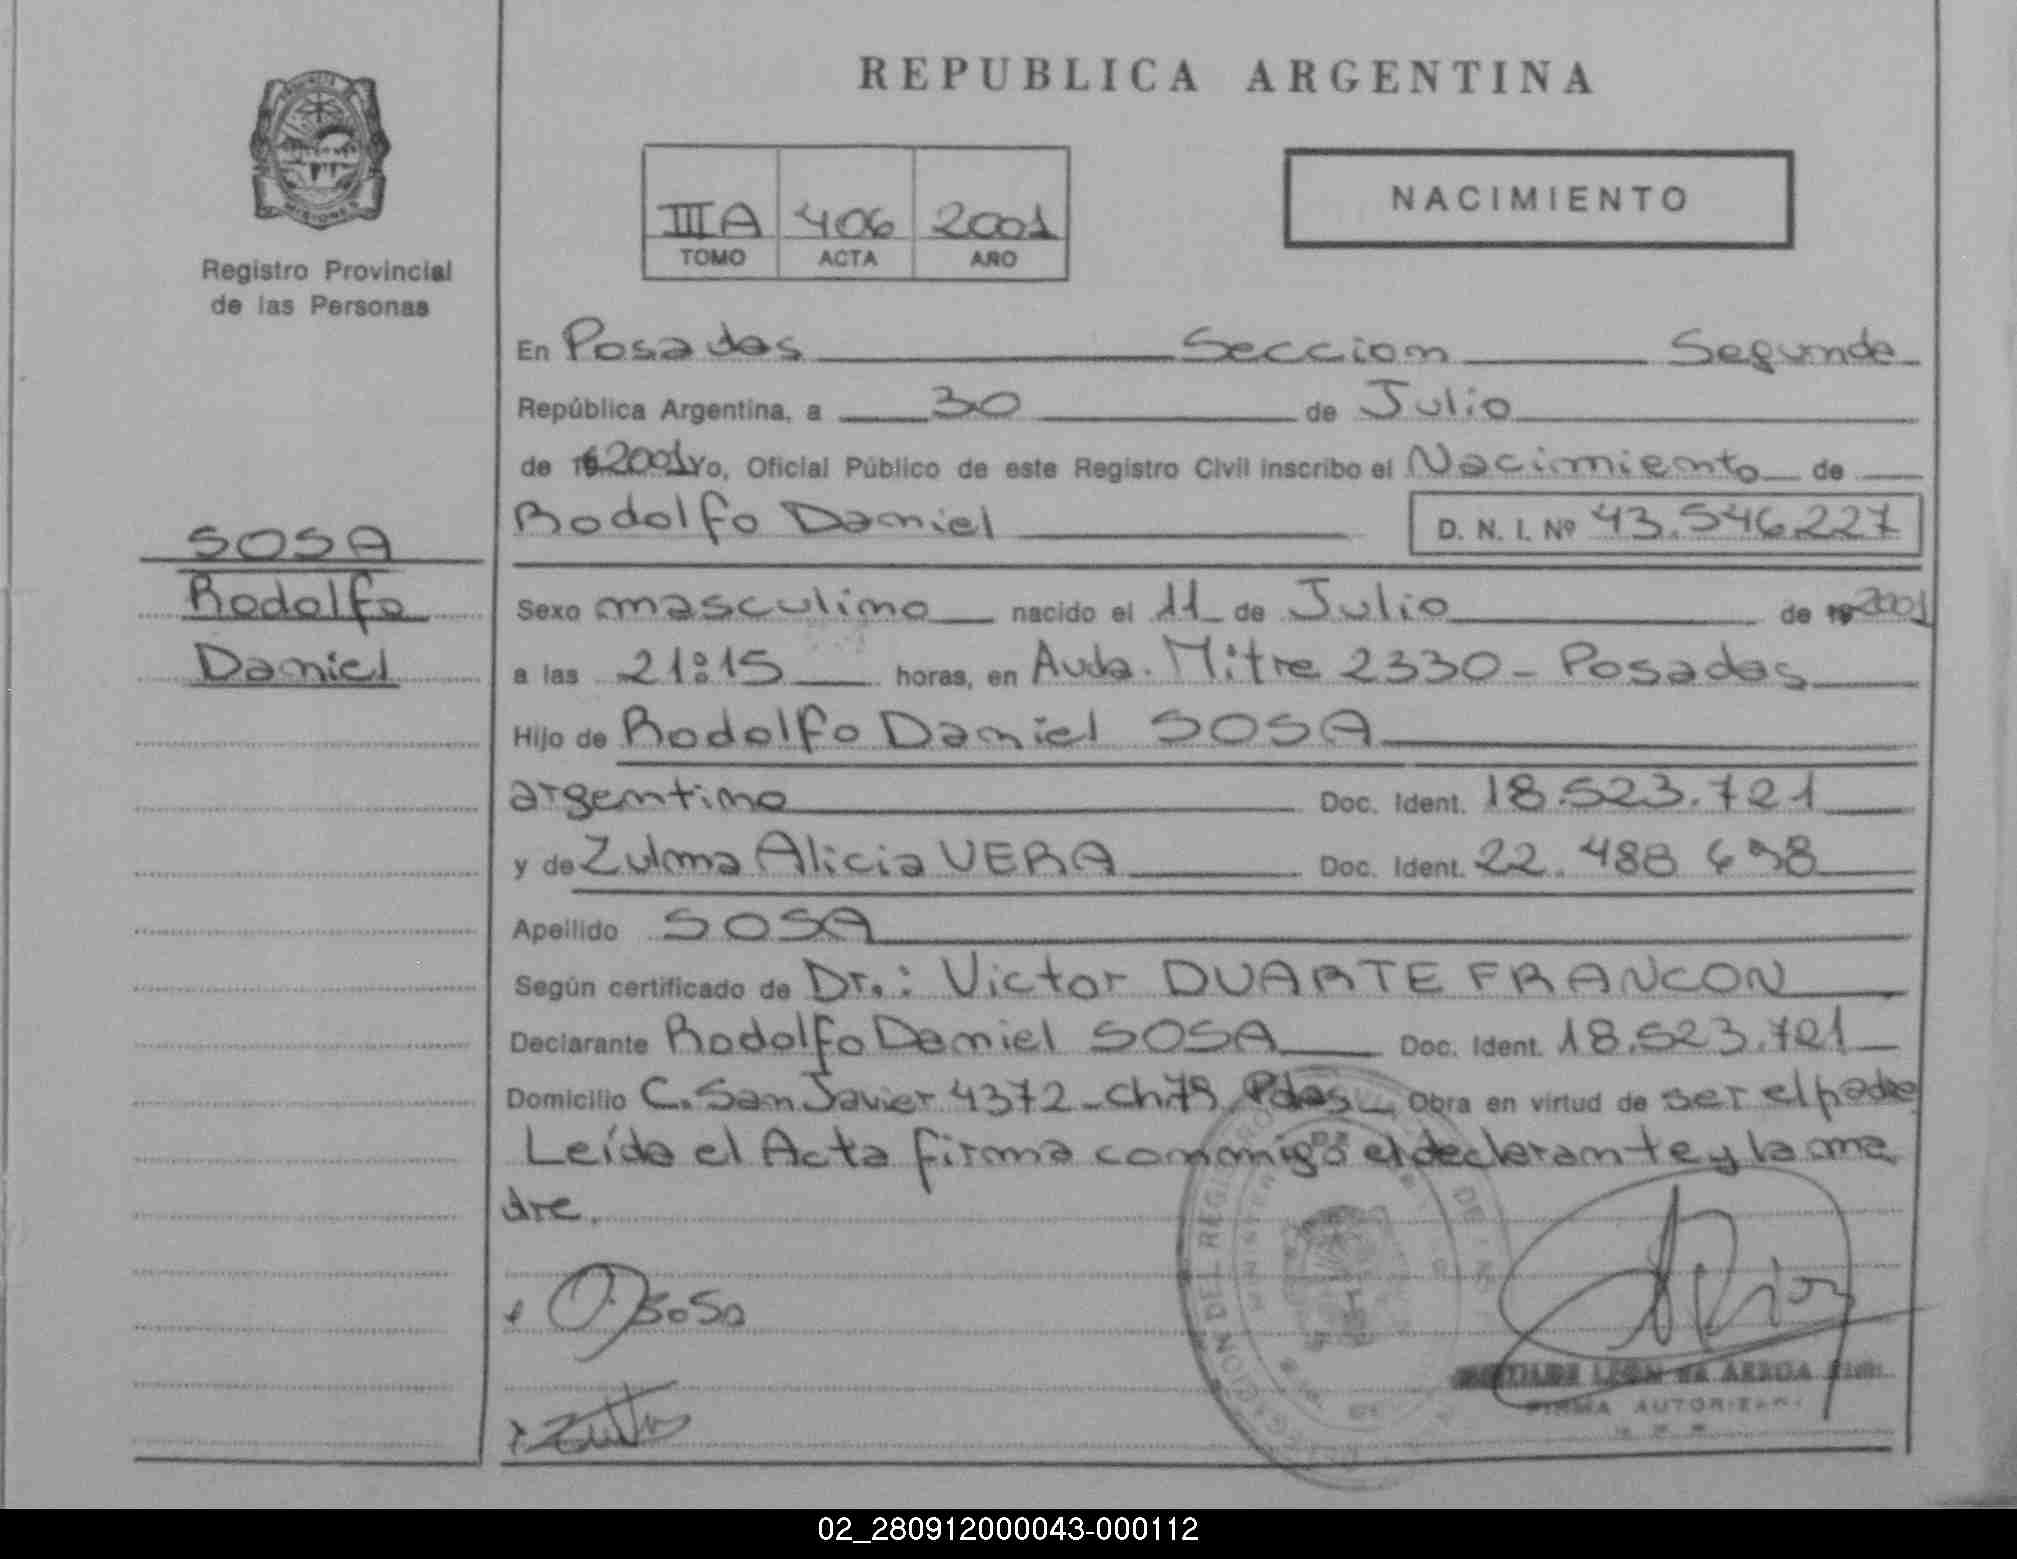 REPUBLICA ARGENTINA
MISIONES
Registro Provincial
de las Personas
IIIA 406 2001
TOMO ACTA AÑO
NACIMIENTO
SOSA
Rodolfo
Daniel
En Posadas Seccion Segunda
República Argentina, a 30 de Julio
de 2001 Yo, Oficial Público de este Registro Civil inscribo el Nacimiento de
Rodolfo Daniel D. N. I. Nº 43.546.227
Sexo masculino nacido el 11 de Julio de 19 2001
a las 21:15 horas, en Avda. Mitre 2330 - Posadas
Hijo de Rodolfo Daniel SOSA
argentino Doc. Ident. 18.523.721
y de Zulma Alicia VERA Doc. Ident. 22.488 698
Apellido SOSA
Según certificado de Dr.: Victor DUARTE FRANCON
Declarante Rodolfo Daniel SOSA Doc. Ident. 18.523.721
Domicilio C. San Javier 4372 - Ch 79 Pdas Obra en virtud de ser el padre
Leída el Acta firma conmigo el declarante y la ma
dre.
Sosa
FIRMA AUTORIZADA
02_280912000043-000112